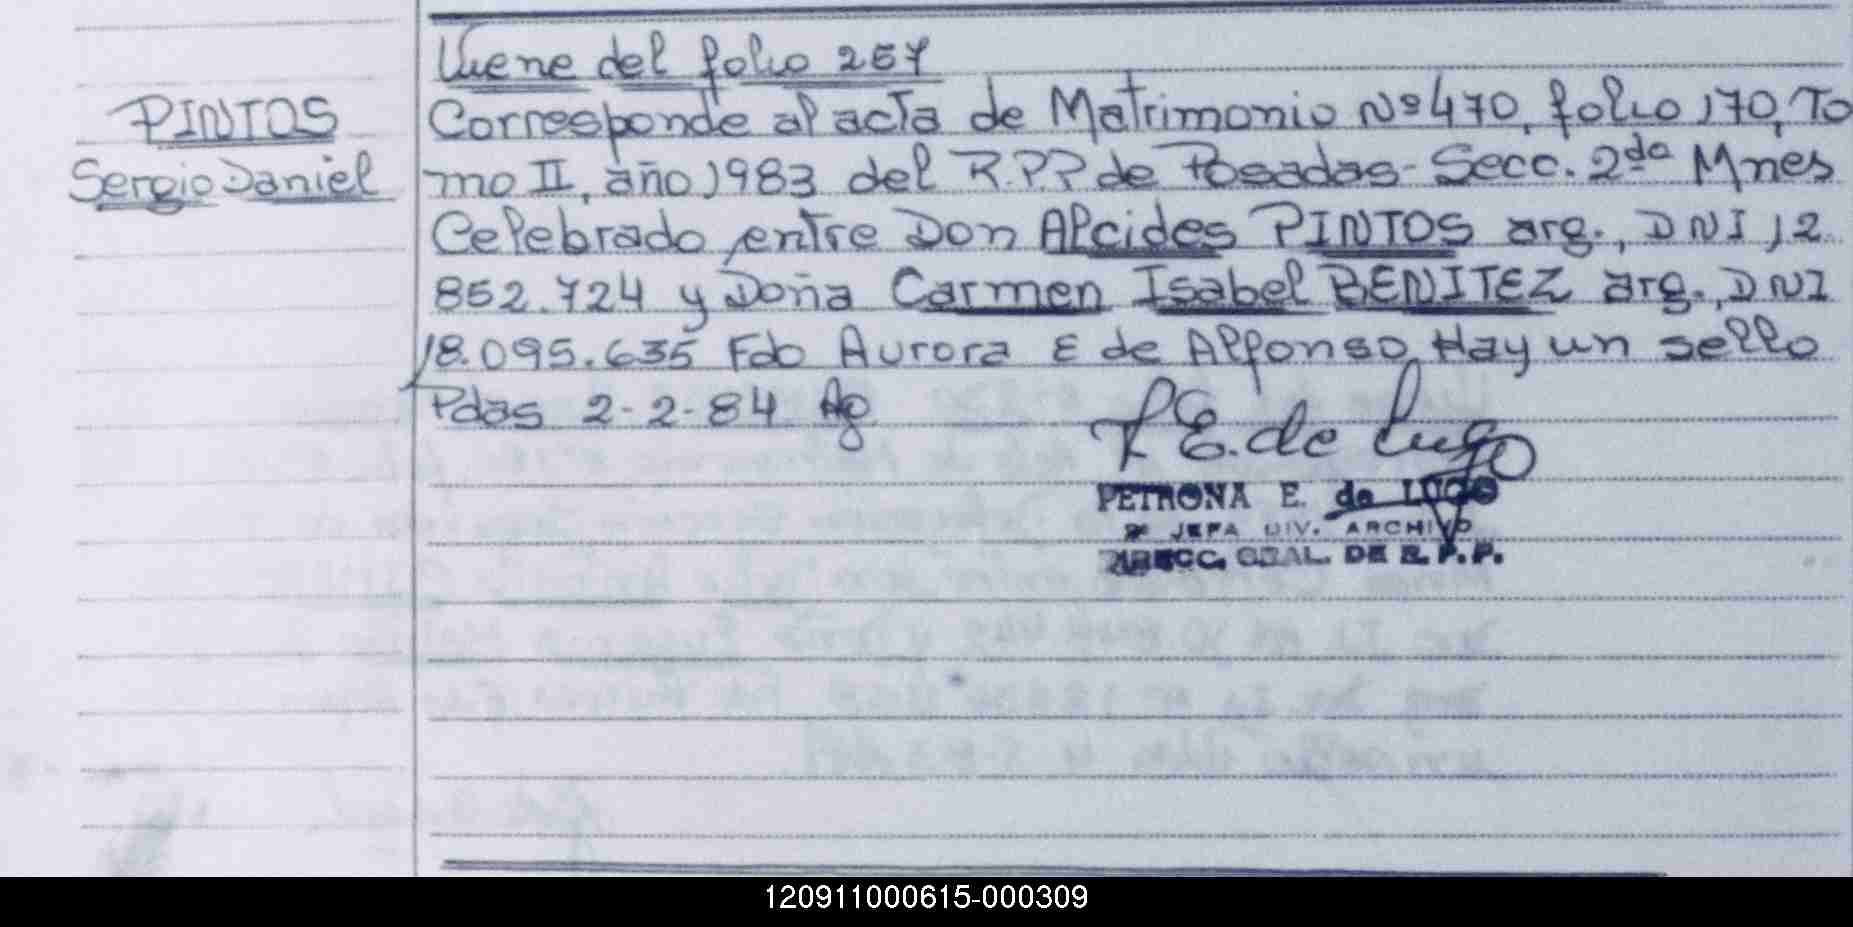 Viene del folio 257
PINTOS
Sergio Daniel
Corresponde al acta de Matrimonio Nº 470, folio 170, To
mo II, año 1983 del R.P.P de Posadas - Secc. 2da Mnes
Celebrado entre Don Alcides PINTOS arg., DNI 12
852.724 y Doña Carmen Isabel BENITEZ arg., DNI
18.095.635 Fdo Aurora E de Alfonso, Hay un sello
Pdas 2-2-84 Ag
P E. de Lugo
PETRONA E. de LUGO
JEFA DIV. ARCHIVO
GRAL. DE R.P.P.
120911000615-000309